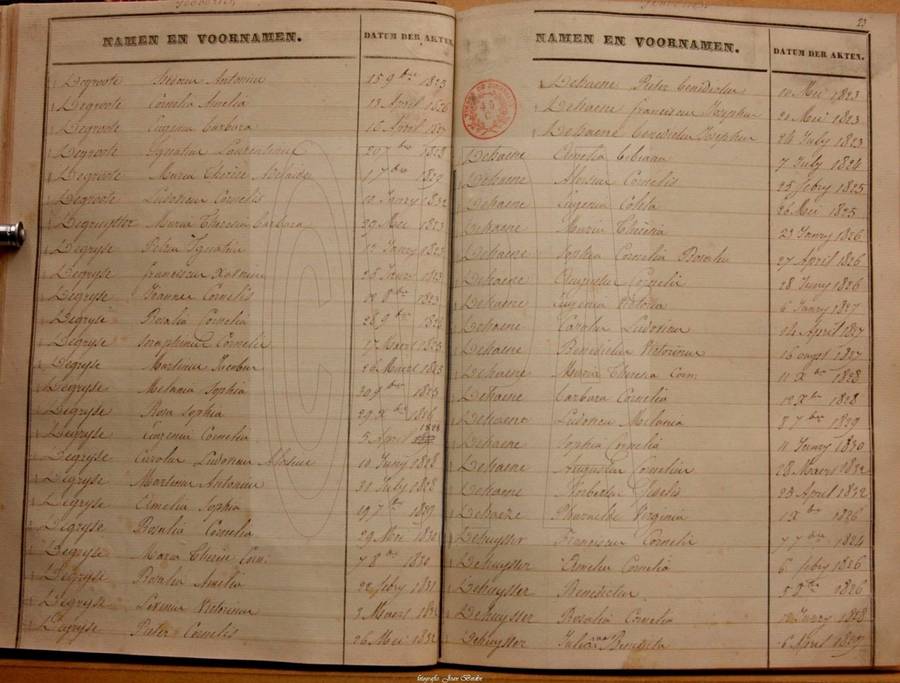 NAMEN EN VOORNAMEN. DATUM DER AKTEN.
Degroote Antonius 15 9bre 1823
Degroote Cornelia Amelia 13 April 1826
Degroote Eugenia Barbara 15 April
Degroote Ignatius Laurentius 20 7bre 1828
Degroote Maria Therese 1 7bre 1829
Degroote Ludovicus Cornelis 11 Janry 1832
Degruytter Maria Theresia Barbara 29 Mei 1823
Degryse Petrus Ignatius 12 Janry 1823
Degryse franciscus 1823
Degryse Joannes Cornelis 8bre 1823
Degryse Rosalia Cornelia 28 9bre
Degryse Seraphinus Cornelis 17 Maers 1825
Degryse Martinus Jacobus 26 Maers 1825
Degryse Melania Sophia 20 9bre 1825
Degryse Rosa Sophia 29 Xbre 1826
Degryse Eugenia Cornelia 5 April 1828
Degryse Carolus Ludovicus Aloisius 10 Juny 1828
Degryse Martinus Antonius 31 July 1828
Degryse Amelia Sophia 19 7bre
Degryse Rosalia Cornelia 29 Mei 1830
Degryse Maria Therese Corn. 7 8bre 1830
Degryse Rosalia Amelia 22 febry 1831
Degryse Victorinus 3 Maers
Degryse Pieter Cornelis 26 Mei 1832
23
NAMEN EN VOORNAMEN. DATUM DER AKTEN.
Dehaene Pieter Benedictus 10 Mei 1823
Dehaene franciscus Josephus 21 Mei 1823
Dehaene Benedictus Josephus 24 July 1823
Dehaene Amelia Bibiana 7 July 1824
Dehaene Aloisius Cornelis 25 febry 1825
Dehaene Eugenia Coleta 26 Mei 1825
Dehaene Maria Theresia 23 Janry 1826
Dehaene Sophia Cornelia Rosalia 27 April 1826
Dehaene Augustus Cornelis 28 Juny 1826
Dehaene Eugenia Victoria 6 Janry 1827
Dehaene Carolus Ludovicus 14 April 1827
Dehaene Benedictus Victorinus 16 augst 1827
Dehaene Maria Theresia Corn. 11 Xbre 1828
Dehaene Barbara Cornelia 12 Xbre 1828
Dehaene Ludovica Melania 8 7bre 1829
Dehaene Sophia Cornelia 11 Janry 1830
Dehaene Augustus Cornelius 28 Maers 1832
Dehaene Norbertus 23 April 1832
Dehaeze Virginia 1 Xbre 1826
Dehuysser Franciscus Cornelis 7 7bre 1824
Dehuysser Amelia Cornelia 6 febry 1826
Dehuysser Benedictus 5 8bre 1826
Dehuysser Rosalia Cornelia Janry 1828
Dehuysser Juliana Benedicta 6 April 1829
fotografie: Joan Baden